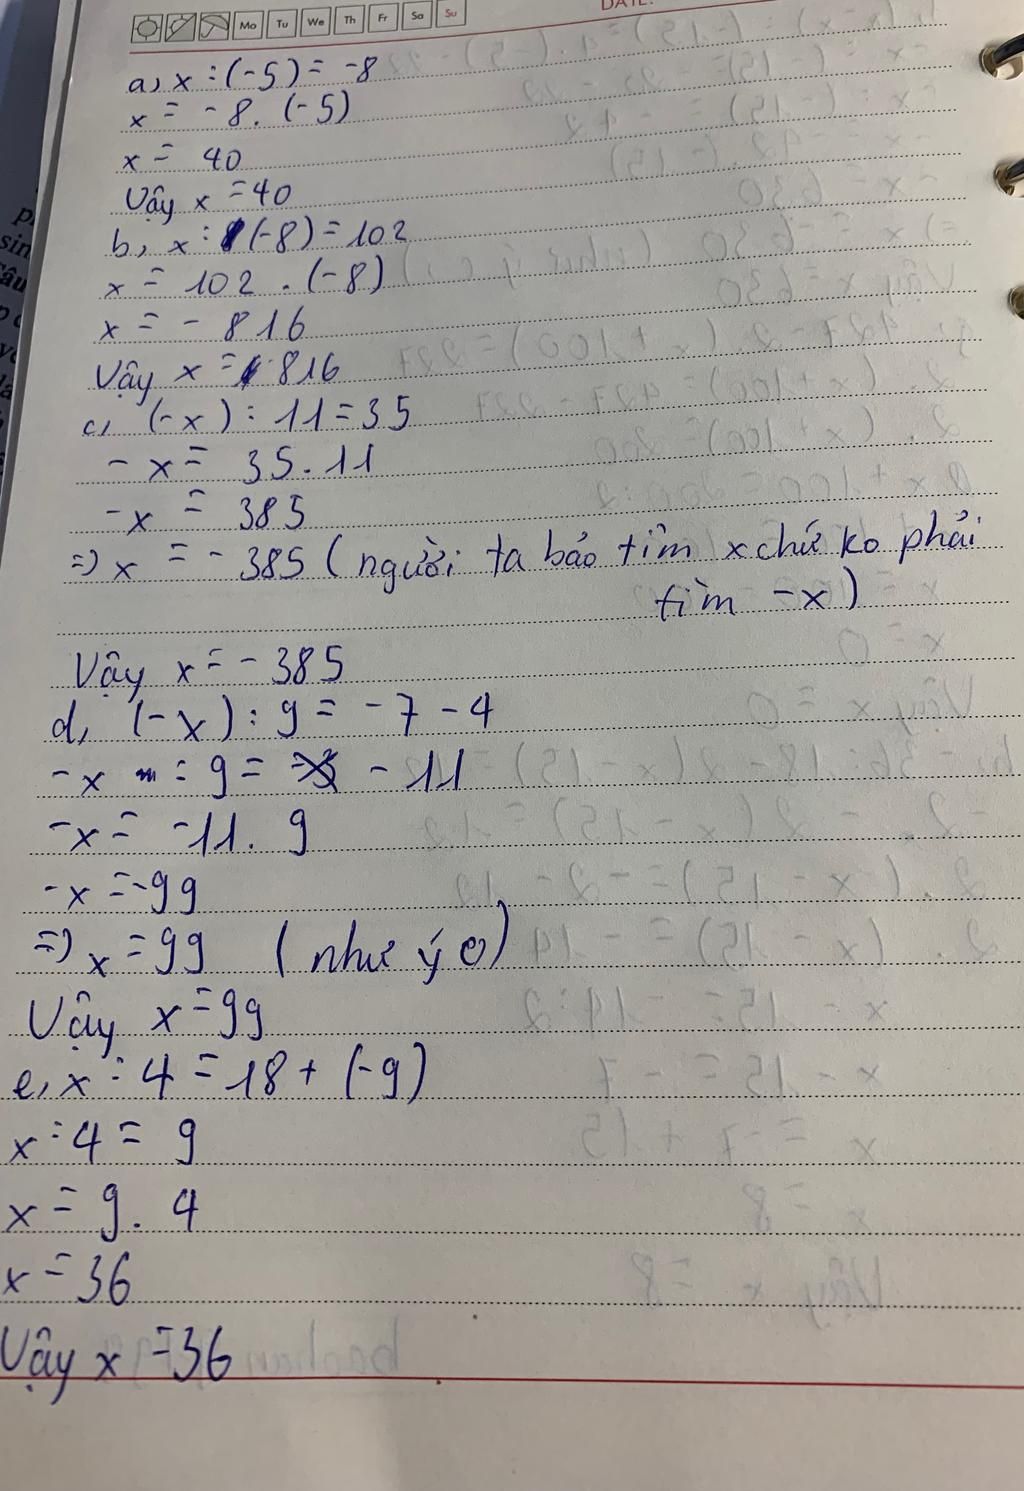 Mo Tu We Th Fr Sa Su
a, x : (-5) = -8
x = -8. (-5)
x = 40
Vậy x = 40
b, x : (-8) = 102
x = 102 . (-8)
x = - 816
Vậy x = 816
c, (-x) : 11 = 35
- x = 35.11
-x = 385
=> x = - 385 ( người ta bảo tìm x chứ ko phải
tìm -x )
Vậy x = - 385
d, (-x) : 9 = -7 - 4
-x : 9 = -11
-x = -11. 9
-x = -99
=> x = 99 ( như ý c)
Vậy x = 99
e, x : 4 = 18 + (-9)
x : 4 = 9
x = 9. 4
x = 36
Vậy x = 36